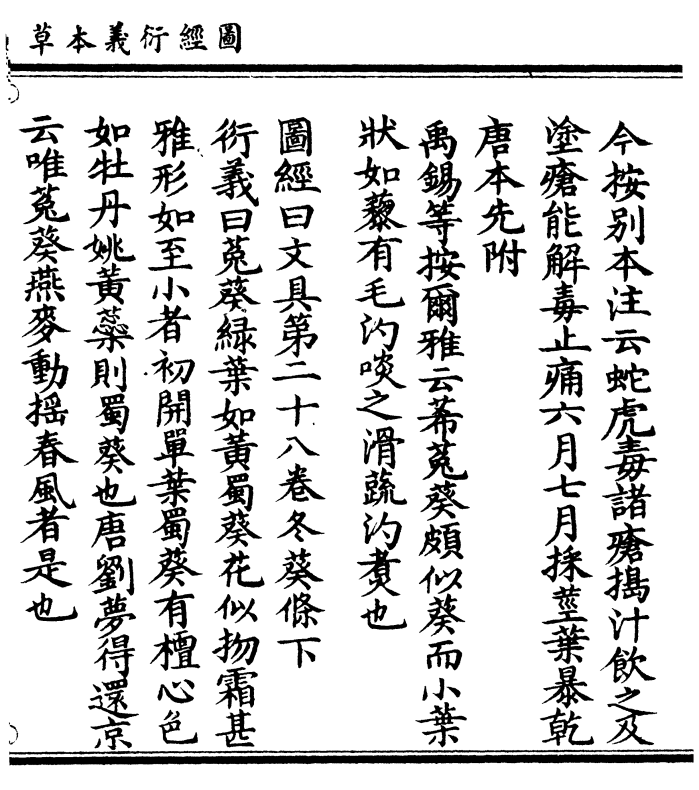 圖經衍義本草
今按別本注云蛇虎毒諸瘡搗汁飲之及
塗瘡能解毒止痛六月七月採莖葉暴乾
唐本先附
禹錫等按爾雅云莃菟葵頗似葵而小葉
狀如藜有毛汋啖之滑䟽汋煑也
圖經曰文具第二十八卷冬葵條下
衍義曰菟葵緑葉如黃蜀葵花似拗霜甚
雅形如至小者初開單葉蜀葵有檀心色
如牡丹姚黃蘂則蜀葵也唐劉夢得還京
云唯菟葵燕麥動揺春風者是也